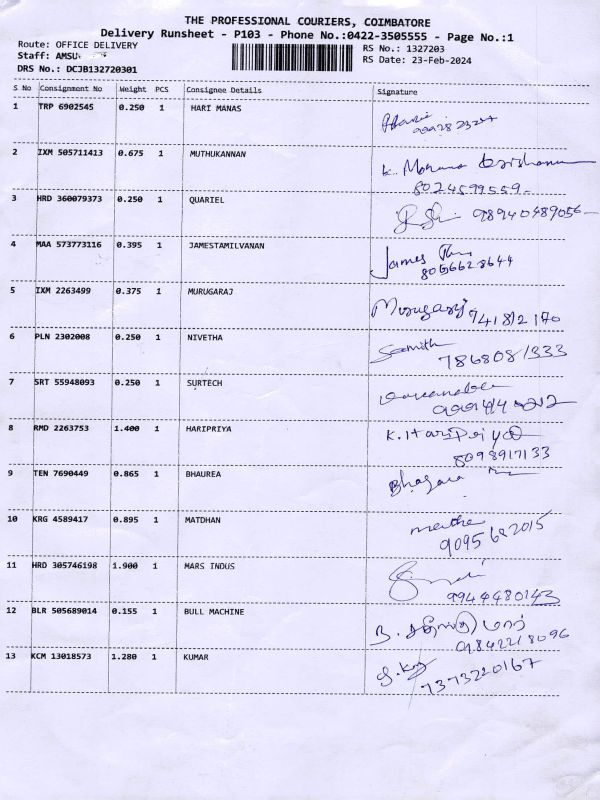 THE PROFESSIONAL COURIERS, COIMBATORE
Delivery Runsheet - P103 - Phone No.:0422-3505555 - Page No.:1
Route: OFFICE DELIVERY RS No.: 1327203
Staff: AMSU RS Date: 23-Feb-2024
DRS No.: DCJB132720301
S No Consignment No Weight PCS Consignee Details Signature
1 TRP 6902545 0.250 1 HARI MANAS
2 IXM 505711413 0.675 1 MUTHUKANNAN K.
8024599559
3 HRD 360079373 0.250 1 QUARIEL
4 MAA 573773116 0.395 1 JAMESTAMILVANAN James
5 IXM 2263499 0.375 1 MURUGARAJ Murugaraj
6 PLN 2302008 0.250 1 NIVETHA
7868081333
7 SRT 55948093 0.250 1 SURTECH
8 RMD 2263753 1.400 1 HARIPRIYA K.Haripriya
8098917133
9 TEN 7690449 0.865 1 BHAUREA
10 KRG 4589417 0.895 1 MATDHAN
9095682015
11 HRD 305746198 1.900 1 MARS INDUS
9944480143
12 BLR 505689014 0.155 1 BULL MACHINE
9842218096
13 KCM 13018573 1.280 1 KUMAR
7373220167